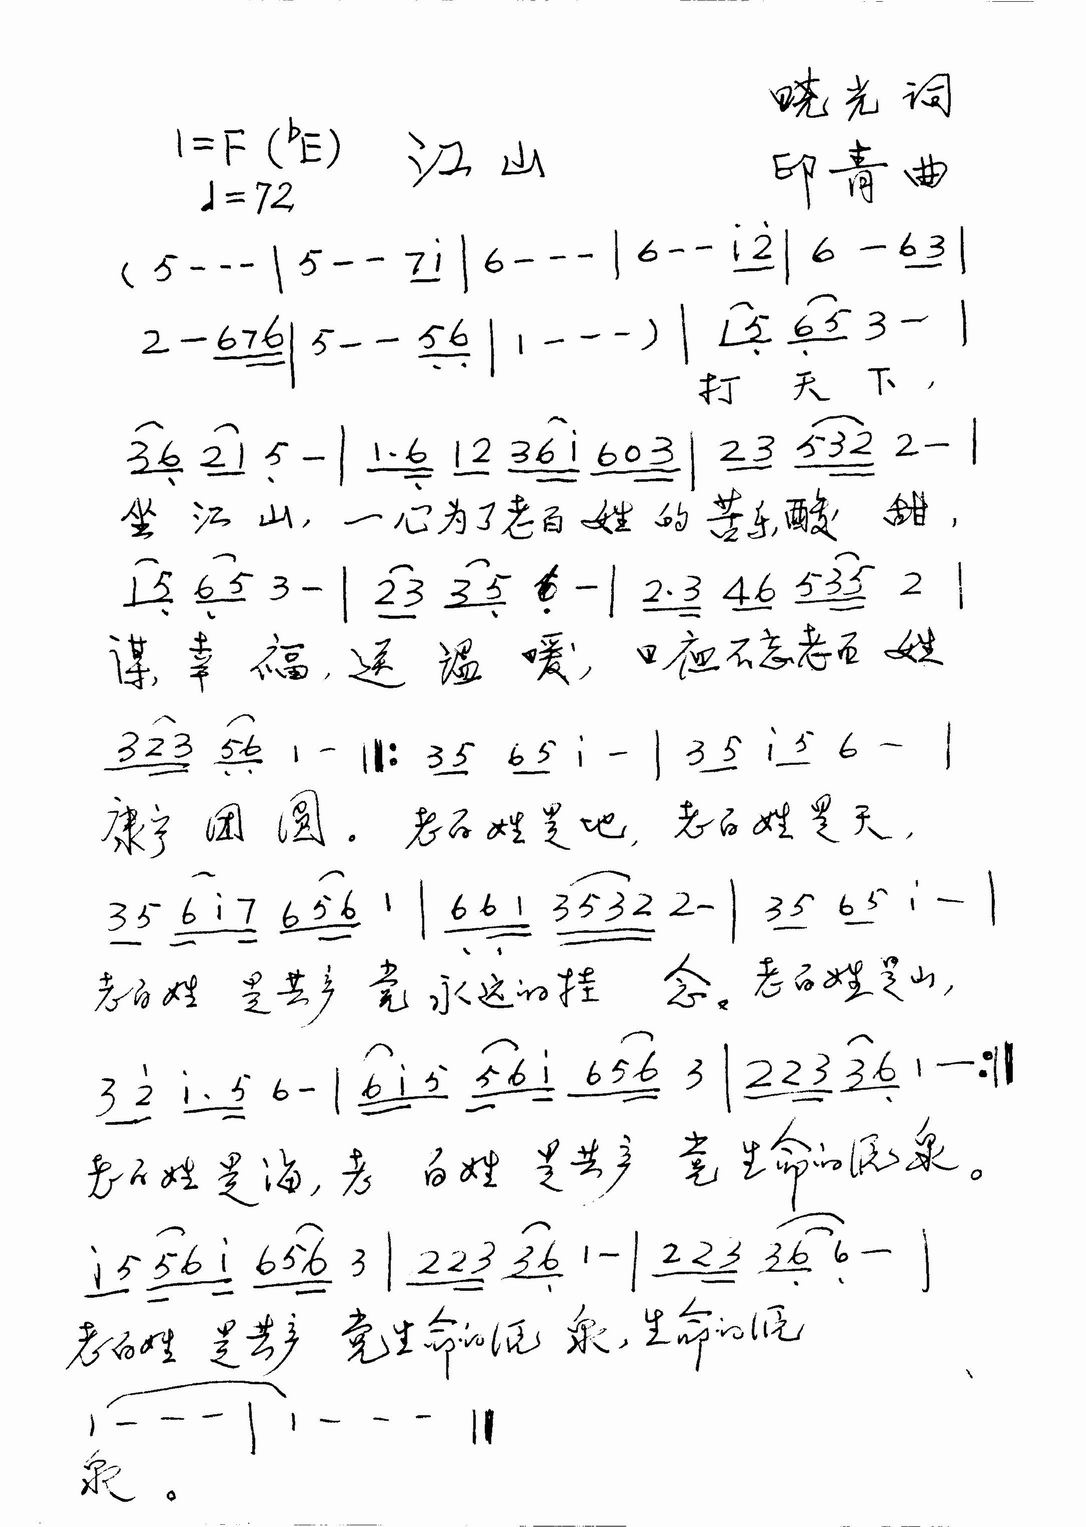 晓光词
1=F (ᵇE) 江山 印青曲
♩=72
(5---|5--7i|6---|6--i2|6-63|
2-676|5--56|1---)|15 653-|
打天下,
36 21 5-|1·6 12 36i 603|23 532 2-|
坐江山,一心为了老百姓的苦乐酸甜,
15 65 3-|23 35 6-|2·3 46 535 2|
谋幸福,送温暖,日夜不忘老百姓
323 56 1-‖: 35 65 i-|35 i5 6-|
康宁团圆。老百姓是地,老百姓是天,
35 6i7 656 1|661 3532 2-|35 65 i-|
老百姓是共产党永远的挂念。老百姓是山,
32 i·5 6-|6i5 56i 656 3|223 36 1-:‖
老百姓是海,老百姓是共产党生命的源泉。
i5 56i 656 3|223 36 1-|223 36 6-|
老百姓是共产党生命的源泉,生命的源
1---|1---‖
泉。